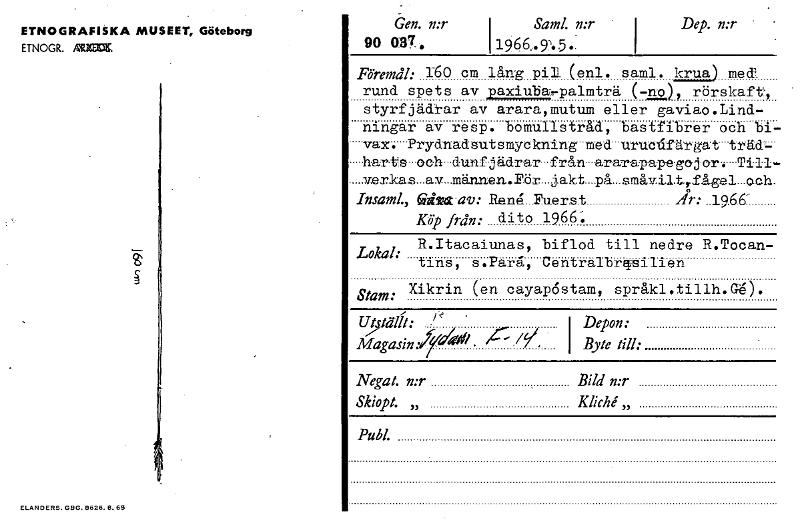 ETNOGRAFISKA MUSEET, Göteborg
ETNOGR.
160 cm
ELANDERS. GBG. 8626. 8. 65
Gen. n:r Saml. n:r Dep. n:r
90 037. 1966.9.5.
Föremål: 160 cm lång pil (enl. saml. krua) med
rund spets av paxiuba-palmträ (-no), rörskaft,
styrfjädrar av arara,mutum eller gaviao.Lind-
ningar av resp. bomullstråd, bastfibrer och bi-
vax. Prydnadsutsmyckning med urucúfärgat träd-
harts och dunfjädrar från ararapapegojor. Till-
verkas av männen.För jakt på småvilt,fågel och
Insaml., Gåva av: René Fuerst År: 1966
Köp från: dito 1966.
Lokal: R.Itacaiunas, biflod till nedre R.Tocan-
tins, s.Pará, Centralbrasilien
Stam: Xikrin (en cayapóstam, språkl.tillh.Gé).
Utställt: Depon:
Magasin: Sydam F-14 Byte till:
Negat. n:r Bild n:r
Skiopt. „ Kliché „
Publ.